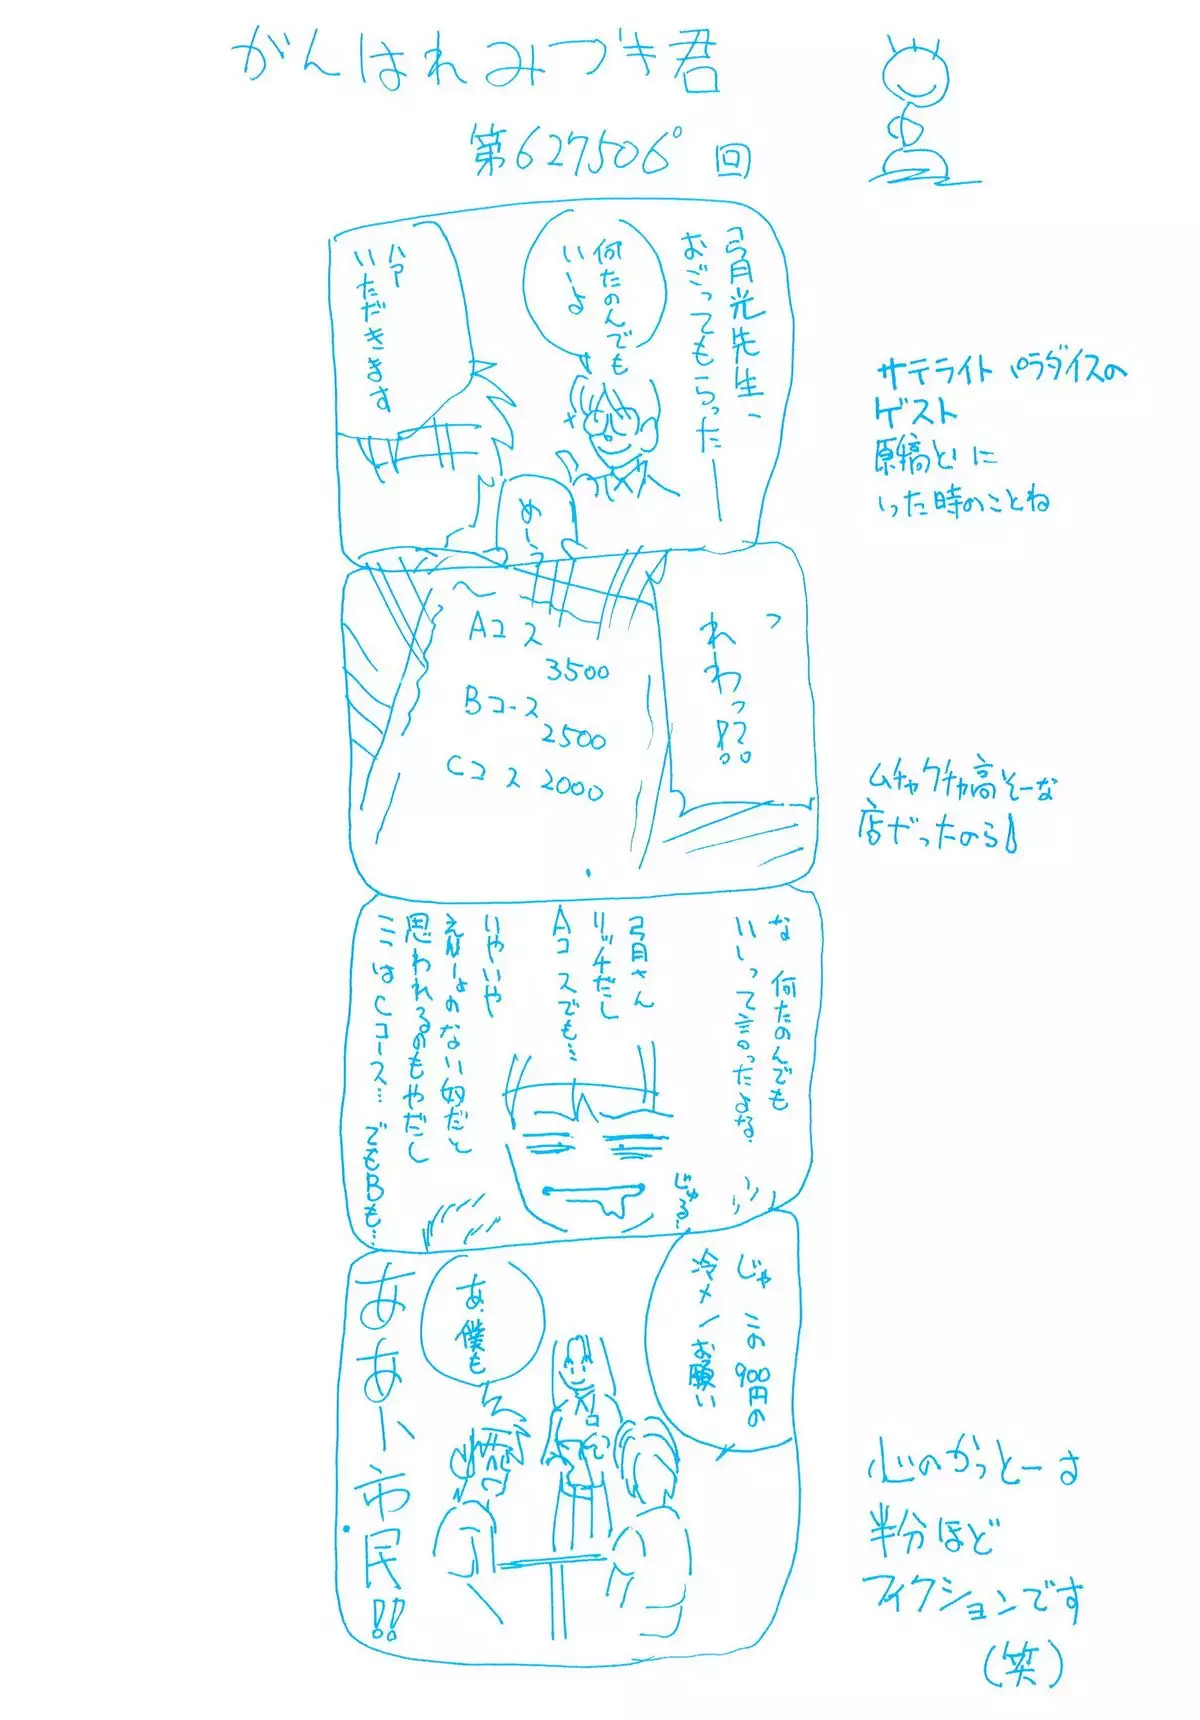 がんばれみづき君
第627506回
弓月光先生、
おごってもらったー
何たのんでも
いーよ
ハァ
いただきます
めにう
サテライトパラダイスの
ゲスト
原稿とりに
いった時のことね
っ
れわっ!?
Aコス
3500
Bコース
2500
Cコス 2000
ムチャクチャ高そーな
店だったのら
な 何たのんでも
いいって言ったよな
弓月さん
リッチだし
Aコスでも…
いやいや
えんりょのない奴だと
思われるのもやだし
ここはCコース… でもBも…
じゅる…
じゃ この900円の
冷メンお願い
あ、僕も
ああ、市民!!
心のかっとーは
半分ほど
フィクションです
(笑)